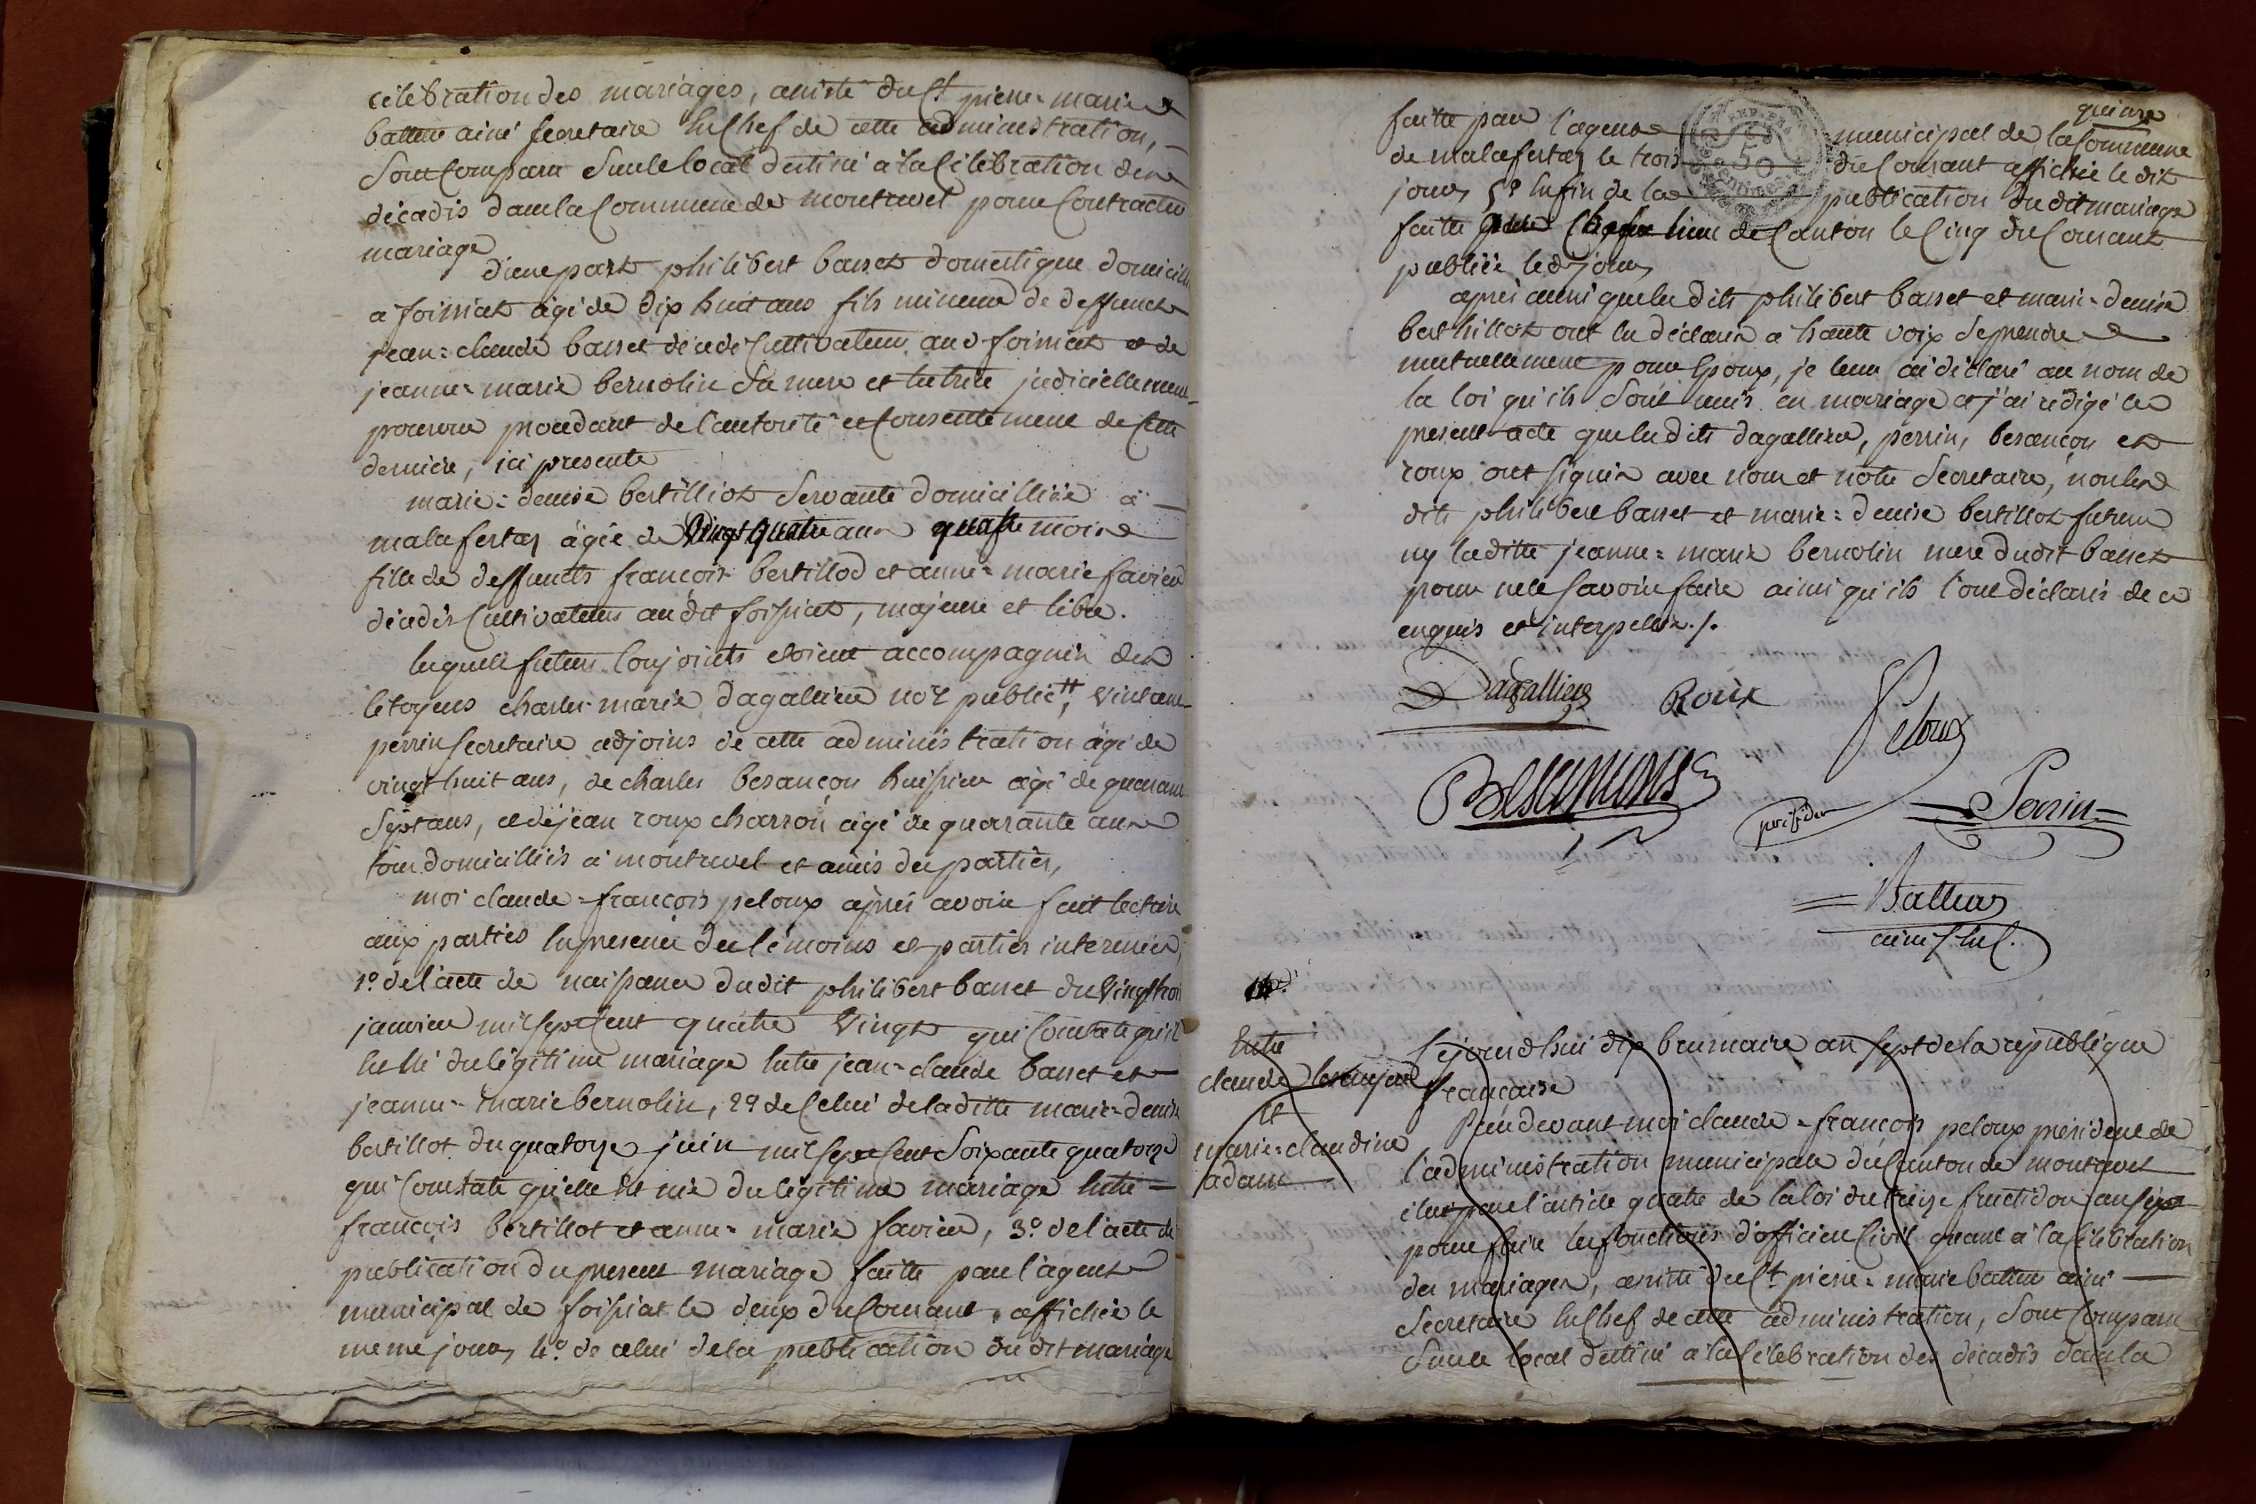 célébration des mariages, assisté du Ct. pierre-marie
battur ainé secretaire en Chef de cette administration,
Sont Comparu Sur le local destiné a la Célébration des
décadis dans la Commune de montrevel pour Contracter
mariage
d'une part philibert basset domestique domicilié
a foissiat agé de dix huit ans fils mineur de deffunct
jean=claude basset décédé Cultivateur aud. foissiat et de
jeanne=marie bernolin Sa mere et tutrice judiciellement
pourvue procedant de l'autorité et Consentement de Cette
derniere, ici presente
marie=denise bertilliot Servante domicilliée a
malafertaz agée de Vingt quatre ans quatre mois
fille de deffuncts françois bertillod et anne=marie favier
décédés Cultivateurs au dit foissiat, majeure et libre.
lesquels futurs Conjoints etoient accompagnés des
Citoyens charles-marie dagallier nore public, Vincent
perrin secretaire adjoins de cette administration agé de
vingt huit ans, de charles besançon huissier agé de quarante
Sept ans, et de jean roux charron agé de quarante ans
tous domicilliés a montrevel et amis des parties,
moi claude=françois peloux aprés avoir fait lecture
aux parties en presence des témoins et parties interessées
1o. de l'acte de naissance dudit philibert basset du Vingt trois
janvier mil sept Cent quatre Vingt qui Constate qu'il
est né du légitime mariage entre jean-claude basset et
jeanne-marie bernolin, 2o. de Celui de laditte marie-denise
bertillot du quatorze juin mil sept Cent Soixante quatorze
qui Constate qu'elle est née du légitime mariage entre
françois bertillot et anne=marie favier, 3o. de l'acte de
publication du present mariage faitte par l'agent
municipal de foissiat le deux du Courant, affichée le
meme jour, 4o. de celui de la publication du dit mariage
quinze
faitte par l'agent municipal de la Commune
de malafertaz le trois du Courant affichée le dit
jour, 5o. enfin de la publication du dit mariage
faitte au Chef lieu de Canton le Cinq du Courant
publiée led. jour
aprés aussi que les dits philibert basset et marie-denise
berthillot ont eu déclaré a haute voix Se prendre
mutuellement pour Epoux, je leur ai déclaré au nom de
la loi qu'ils Sont unis en mariage et j'ai rédigé le
present acte que lesdits dagallier, perrin, besançon et
roux ont signés avec nous et notre Secretaire, non les
dits philibert basset et marie=denise bertillot futurs
ny laditte jeanne=marie bernolin mere dudit basset
pour ne le Savoir faire ainsi qu'ils l'ont déclaré de ce
enquis et interpellés./.
Dagallier Roux
Peloux
Besançons
président
Perrin
Battur
ainé
Entre
claude
et
marie=claudine
adam
Cejourdhui dix brumaire an sept de la république
française
Pardevant moi claude=françois peloux président de
l'administration municipale du Canton de montrevel
élu par l'article quatre de la loi du treize fructidor an six
pour faire les fonctions d'officier Civil quant à la Célébration
des mariages, assisté du Ct. pierre=marie battur ainé
Secretaire en Chef de cette administration, Sont Comparu
Sur le local destiné a la Célébration des décadis dans la